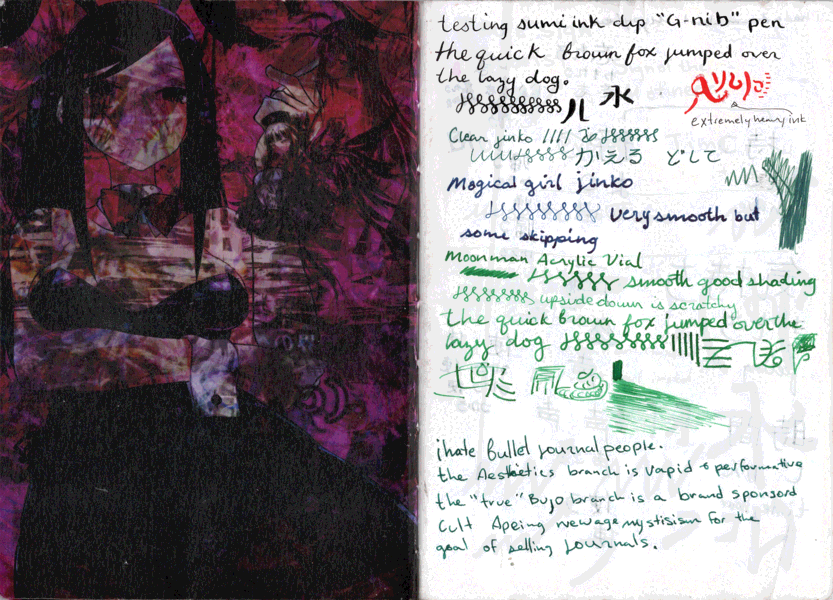 testing sumi ink dip "G-nib" pen
the quick brown fox jumped over
the lazy dog.
儿 水
extremely heavy ink
Clear jinko
かえる どして
Magical girl jinko
very smooth but
some skipping
Moonman Acrylic Vial
smooth good shading
upside down is scratchy
the quick brown fox jumped over the
lazy dog
i hate bullet journal people.
the Aesthetics branch is vapid & performative
the "true" Bujo branch is a brand sponsord
Cult Apeing newage mystisism for the
goal of selling journals.